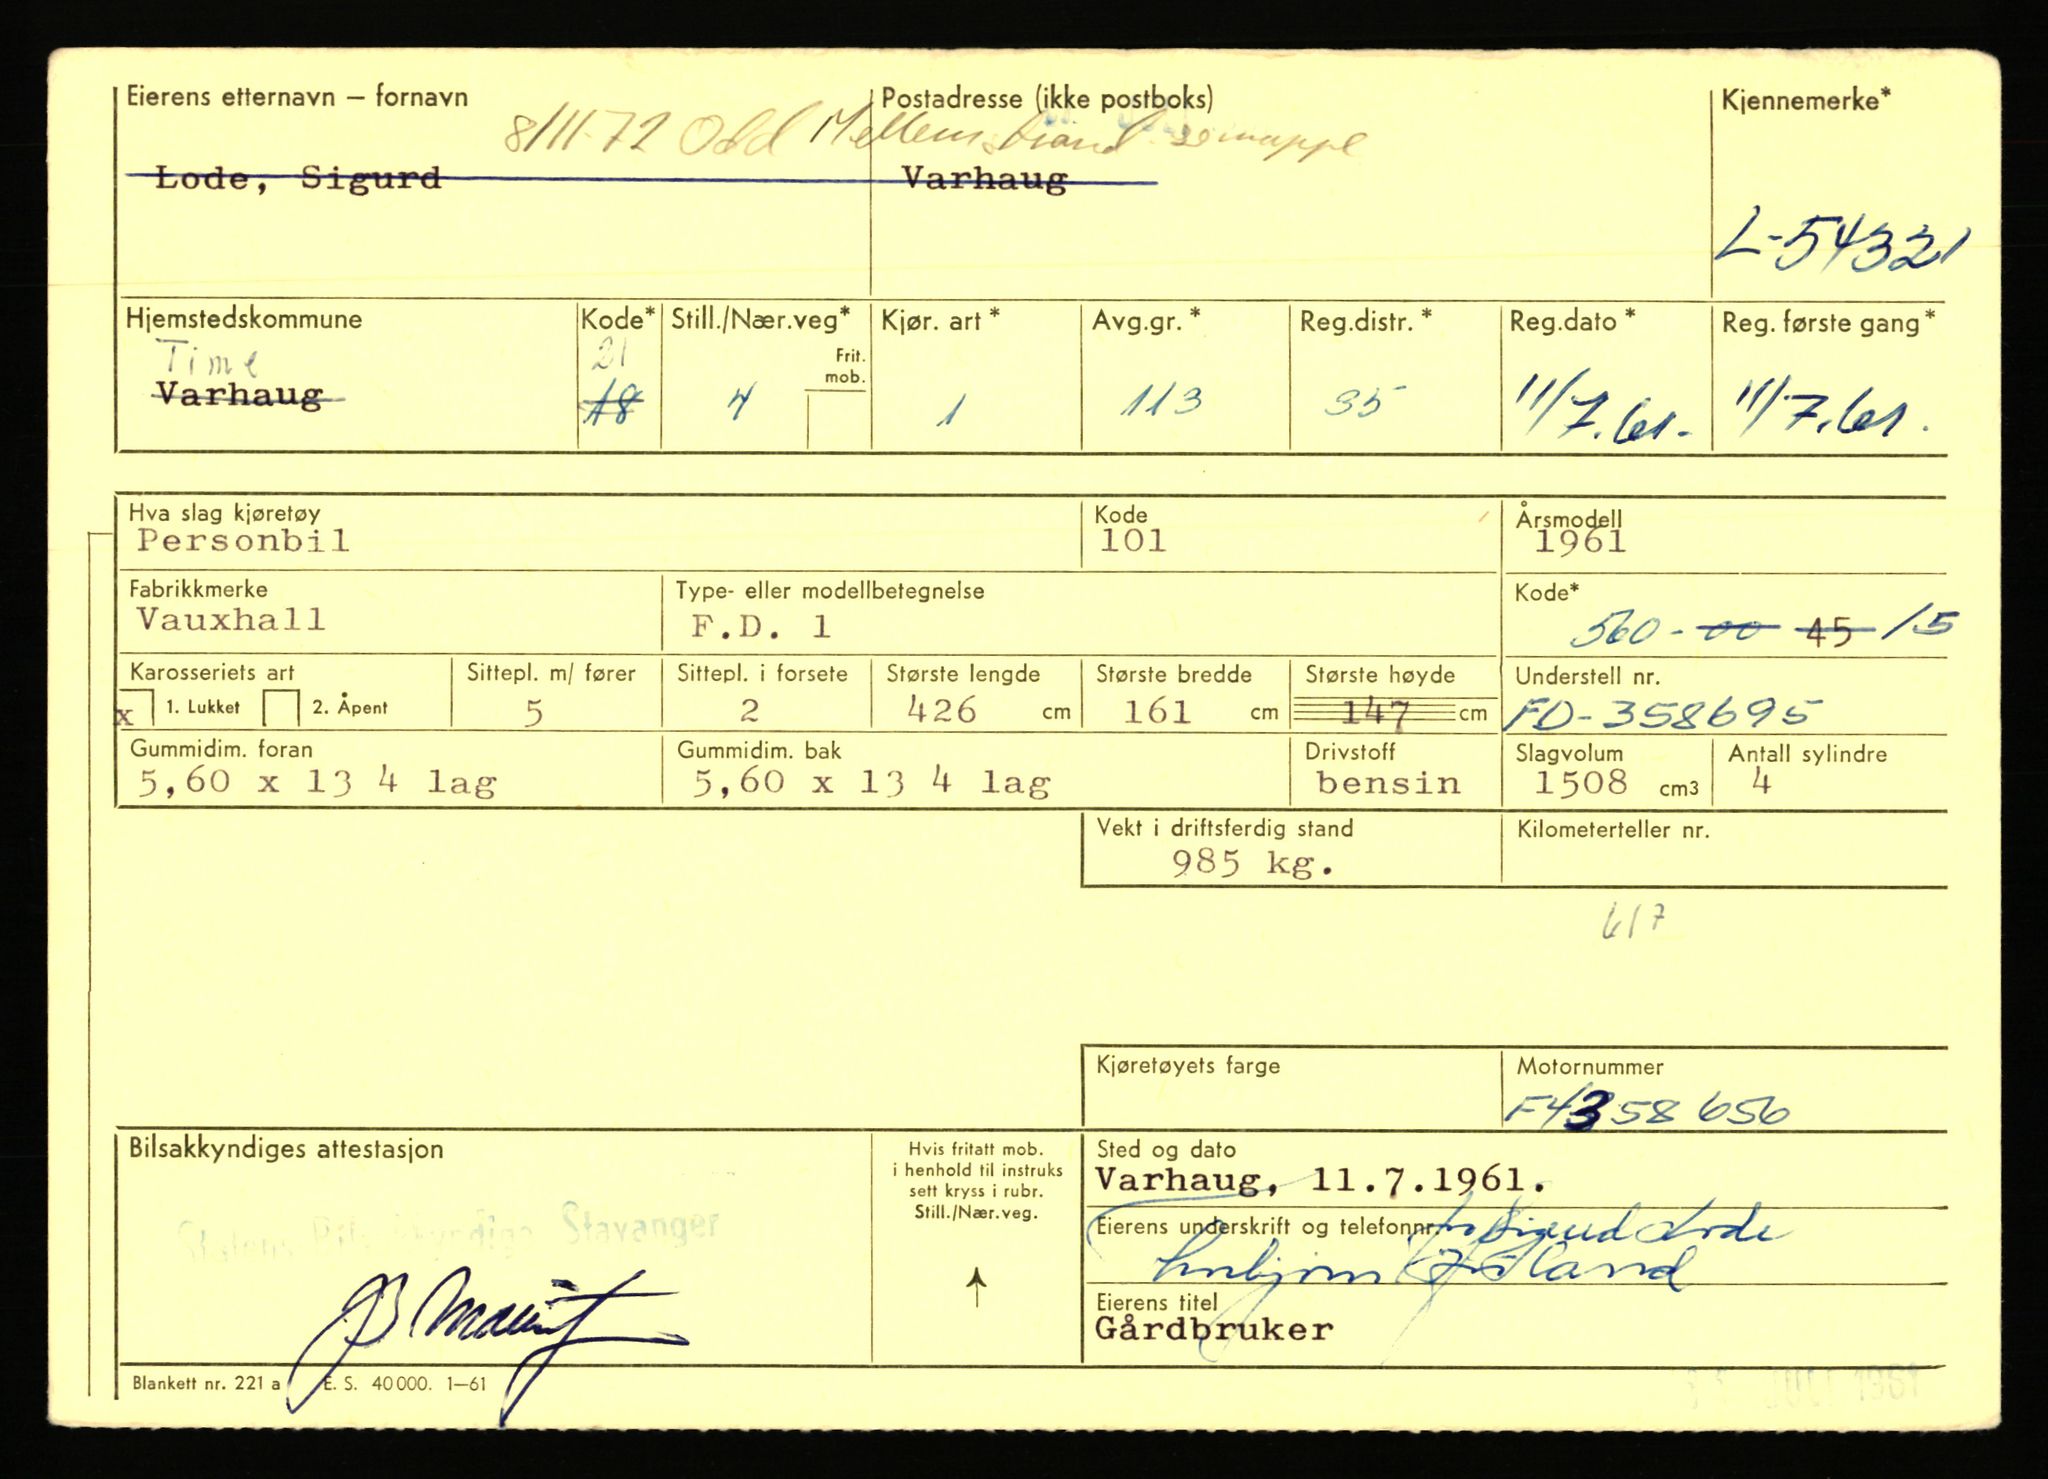 Eierens etternavn – fornavn Postadresse (ikke postboks) Kjennemerke*
8/11-72 Odd Mellemstrand se mappe
Lode, Sigurd Varhaug
L-54321
Hjemstedskommune Kode* Still./Nær.veg* Kjør. art* Avg.gr.* Reg.distr.* Reg.dato* Reg. første gang*
Time 21 Frit. mob.
Varhaug 18 4 1 113 35 11/7.61. 11/7.61.
Hva slag kjøretøy Kode Årsmodell
Personbil 101 1961
Fabrikkmerke Type- eller modellbetegnelse Kode*
Vauxhall F.D. 1 560-00 45 15
Karosseriets art Sittepl. m/ fører Sittepl. i forsete Største lengde Største bredde Største høyde Understell nr.
x 1. Lukket 2. Åpent 5 2 426 cm 161 cm 147 cm FD-358695
Gummidim. foran Gummidim. bak Drivstoff Slagvolum Antall sylindre
5,60 x 13 4 lag 5,60 x 13 4 lag bensin 1508 cm3 4
Vekt i driftsferdig stand Kilometerteller nr.
985 kg.
617
Kjøretøyets farge Motornummer
F4358656
Bilsakkyndiges attestasjon Hvis fritatt mob. Sted og dato
i henhold til instruks Varhaug, 11.7.1961.
sett kryss i rubr.
Still./Nær.veg. Eierens underskrift og telefonnr. Sigurd Lode
Statens Bilsakkyndige Stavanger
Eierens titel
Gårdbruker
Blankett nr. 221 a E. S. 40000. 1–61 JULI 1961